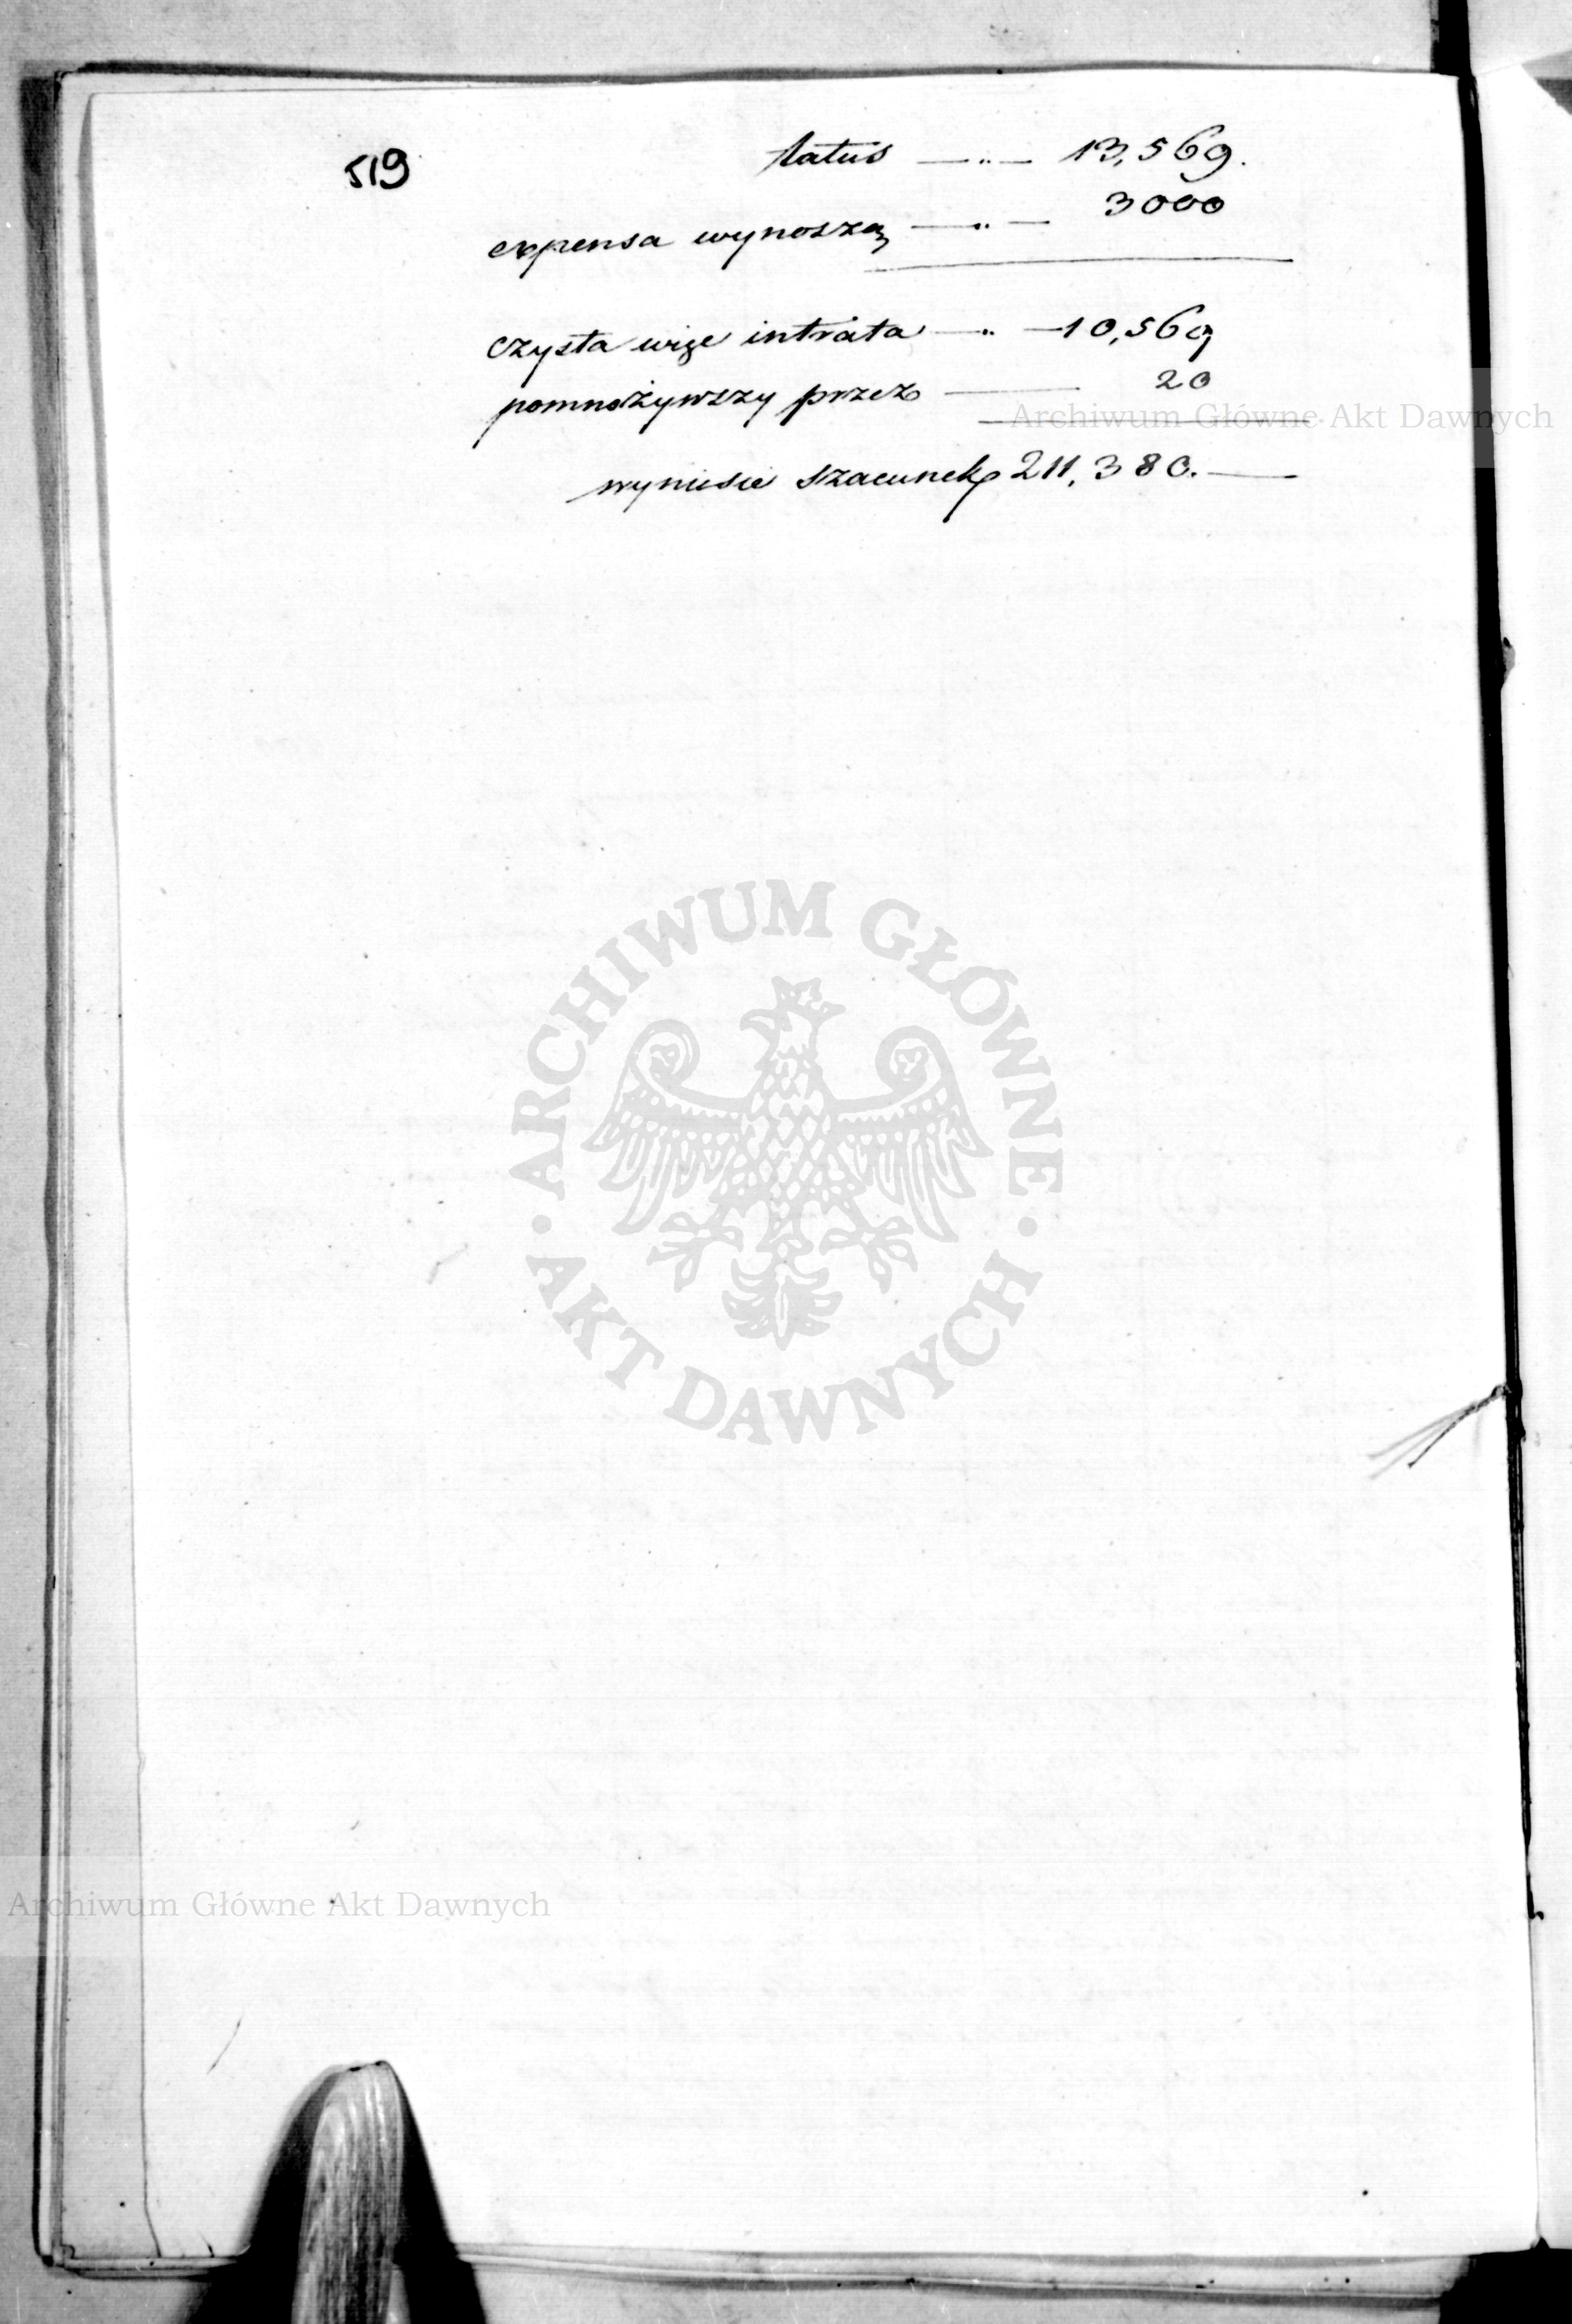 519
latus —„— 13,569.
expensa wynoszą —„— 3000
czysta więc intrata —„— 10,569
pomnożywszy przez — 20
Archiwum Główne Akt Dawnych
wyniesie szacunek 211,380.—
ARCHIWUM GŁÓWNE · AKT DAWNYCH ·
Archiwum Główne Akt Dawnych